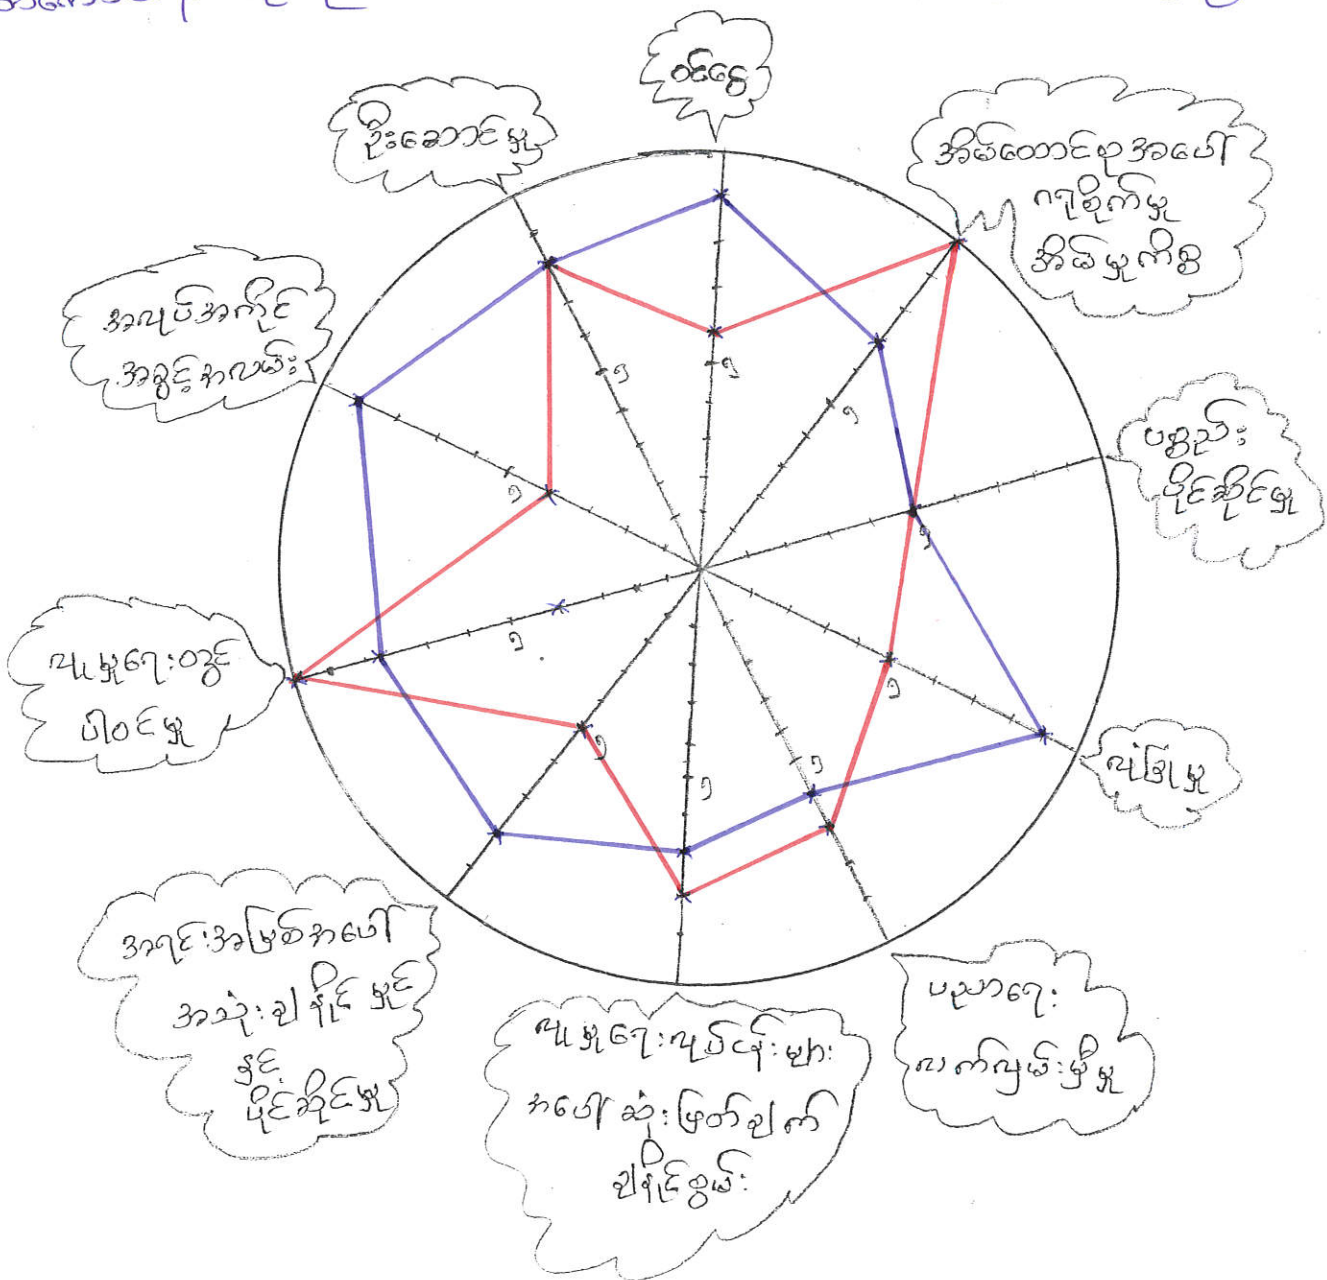 ဝင်ငွေ
အိမ်ထောင်စုအပေါ်
ဂရုစိုက်မှု
အိမ်မှုကိစ္စ
ပစ္စည်း
ပိုင်ဆိုင်မှု
လုံခြုံမှု
ပညာရေး
လက်လှမ်းမှီမှု
လူမှုရေးလုပ်ငန်းများ
အပေါ် ဆုံးဖြတ်ချက်
ချနိုင်စွမ်း
အရင်းအမြစ်အပေါ်
အသုံးချနိုင်မှုင်
နှင့်
ပိုင်ဆိုင်မှု
လူမှုရေးတွင်
ပါဝင်မှု
အလုပ်အကိုင်
အခွင့်အလမ်း
ဦးဆောင်မှု
၅
၅
၅
၅
၅
၅
၅
၅
၅
၅